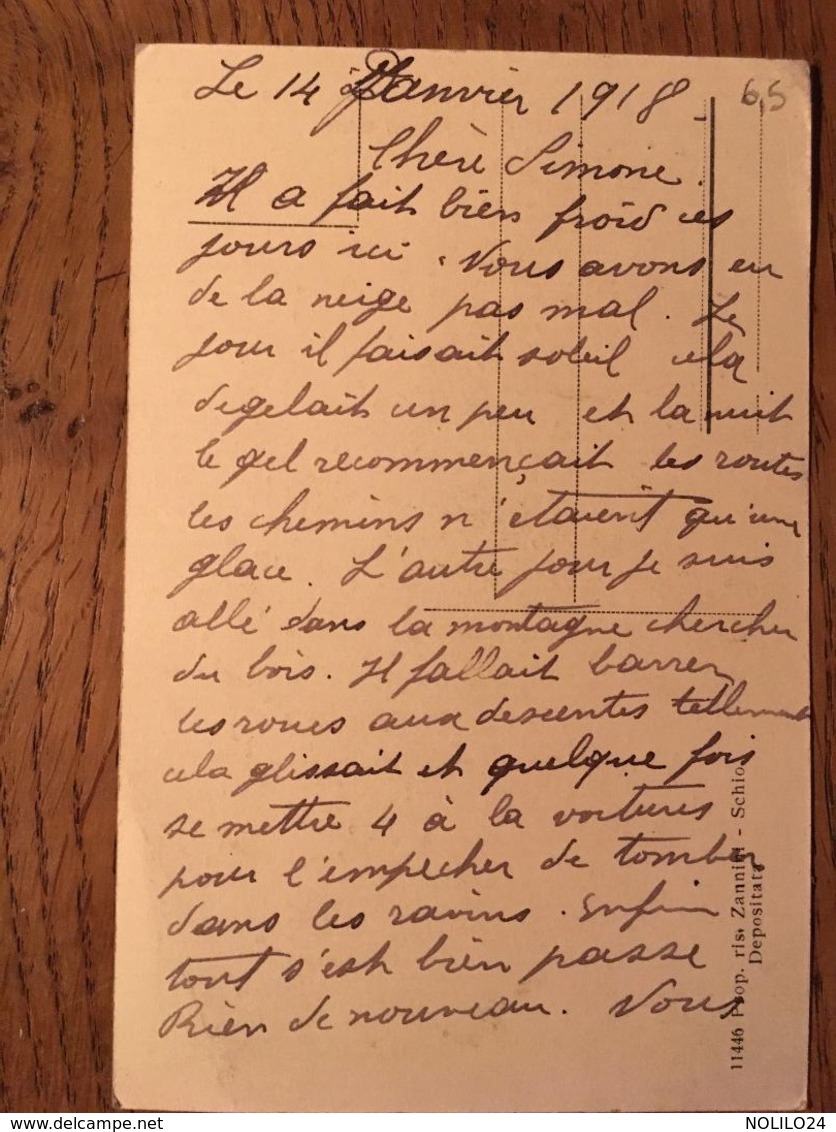 Le 14 Janvier 1918
6,5
Chère Simone.
Il a fait bien froid ces
jours ici. Nous avons eu
de la neige pas mal. Le
jour il faisait soleil cela
degelait un peu et la nuit
le gel recommençait les routes
les chemins n'étaient qu'une
glace. L'autre jour je suis
allé dans la montagne chercher
du bois. Il fallait barrer
les roues aux descentes tellement
cela glissait et quelque fois
se mettre 4 à la voitures
pour l'empecher de tomber
dans les ravins. Enfin
tout s'est bien passe
Rien de nouveau. Vous
11446 Prop. ris. Zannini - Schio
Depositata
NOLILO24